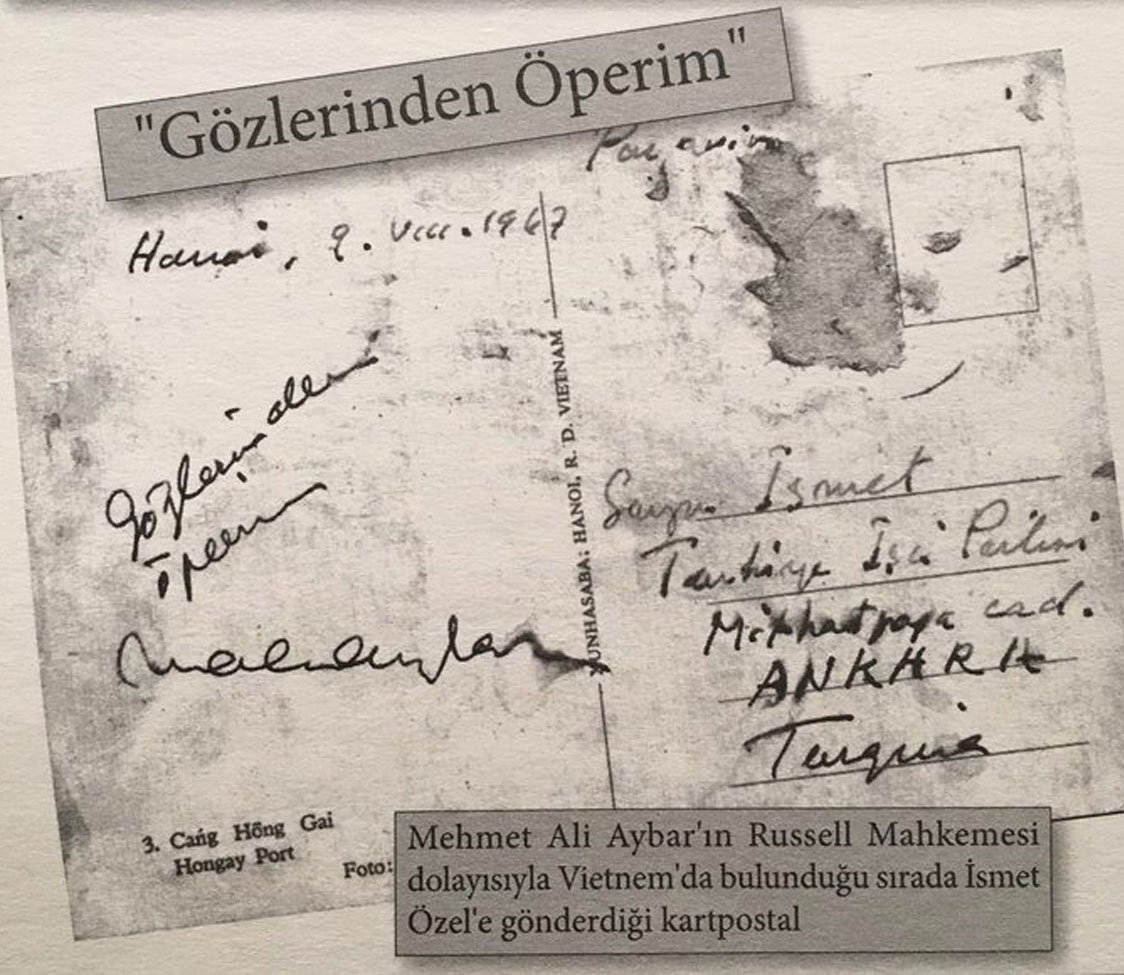 "Gözlerinden Öperim"
Hanoi, 9. VIII. 1967
Gözlerinden
öperim
XUNHASABA: HANOI, R. D. VIETNAM
Sayın İsmet
Türkiye İşçi Partisi
Mithatpaşa cad.
ANKARA
Turquie
3. Cańg Hồng Gai
Hongay Port
Foto:
Mehmet Ali Aybar'ın Russell Mahkemesi
dolayısıyla Vietnem'da bulunduğu sırada İsmet
Özel'e gönderdiği kartpostal